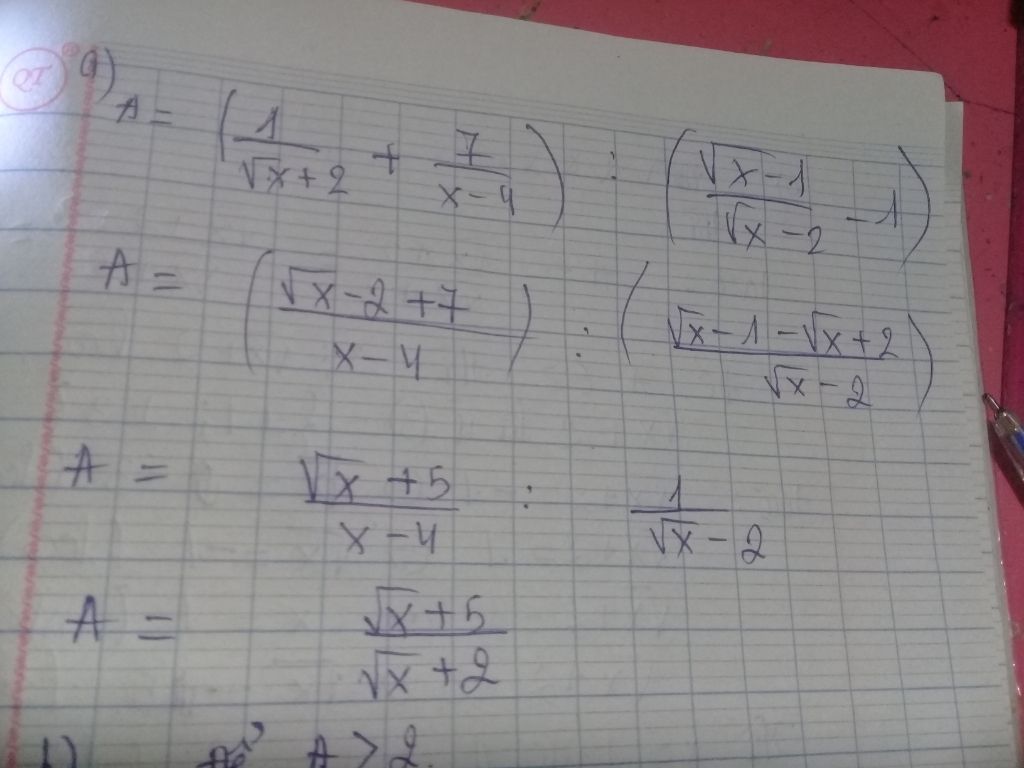 a)
A = (1/(√x + 2) + 7/(x - 4)) : ((√x - 1)/(√x - 2) - 1)
A = ((√x - 2 + 7)/(x - 4)) : ((√x - 1 - √x + 2)/(√x - 2))
A = (√x + 5)/(x - 4) : 1/(√x - 2)
A = (√x + 5)/(√x + 2)
b) A > 2